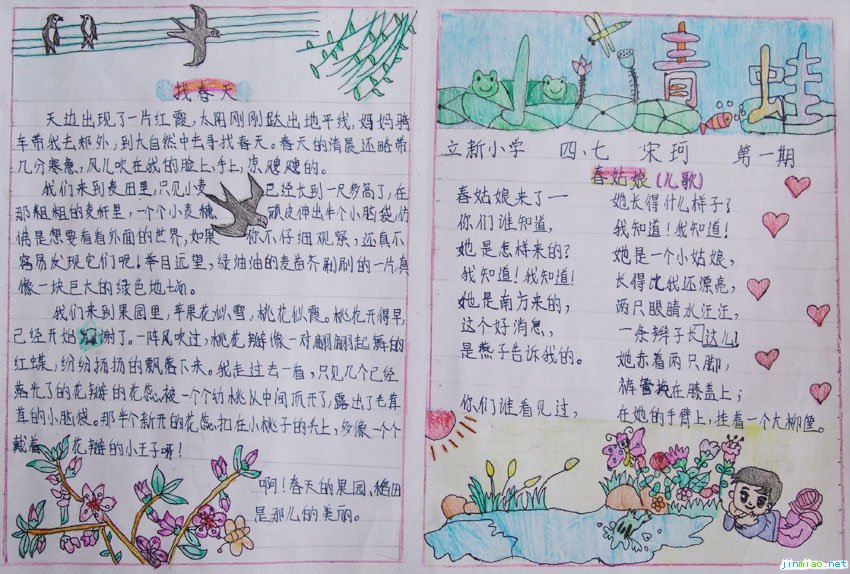 找春天
天边出现了一片红霞,太阳刚刚跃出地平线,妈妈骑
车带我去郊外,到大自然中去寻找春天。春天的清晨还略带
几分寒意,风儿吹在我的脸上、手上,凉飕飕的。
我们来到麦田里,只见小麦已经长到一尺多高了,在
那粗粗的麦杆里,一个个小麦穗顽皮伸出半个小脑袋,仿
偶是想要看看外面的世界,如果你不仔细观察,还真不
容易发现它们呢!举目远望,绿油油的麦苗齐刷刷的一片,真
像一块巨大的绿色地毯。
我们来到果园里,苹果花似雪,桃花似霞。桃花开得早,
已经开始凋谢了。一阵风吹过,桃花瓣像一对对翩翩起舞的
红蝶,纷纷扬扬的飘落下来。我走过去一看,只见几个已经
落光了的花瓣的花蕊,被一个个幼桃从中间顶开了,露出了毛茸
茸的小脑袋。那半个新开的花蕊,扣在小桃子的头上,多像一个个
戴着花瓣的小王子呀!
啊!春天的果园、稻田
是那儿的美丽。
青蛙
立新小学 四、七 宋珂 第一期
春姑娘(儿歌)
春姑娘来了——
你们谁知道,
她是怎样来的?
我知道!我知道!
她是南方来的,
这个好消息,
是燕子告诉我的。
你们谁看见过,
她长得什么样子?
我知道!我知道!
她是一个小姑娘,
长得比我还漂亮,
两只眼睛水汪汪,
一条辫子长这儿!
她赤着两只脚,
裤管挽在膝盖上;
在她的手臂上,挂着一个大柳筐。
jinmiao.net